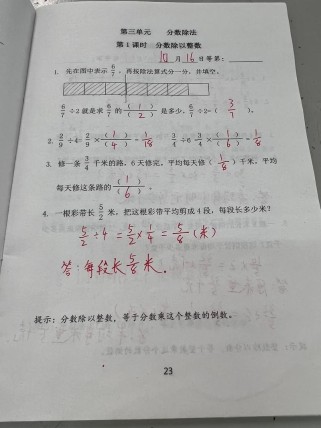 第三单元 分数除法
第1课时 分数除以整数
10月16日等第:
1. 先在图中表示 6/7 ,再按除法算式分一分,并填空。
6/7 ÷2就是求 6/7 的 (1)/(2) 是多少。6/7 ÷2=( 3/7 )。
2. 2/9 ÷4= 2/9 ×(1)/(4)= 1/18 3/4 ÷6= 3/4 ×(1)/(6)= 1/8
3. 修一条 3/4 千米的路,6天修完。平均每天修( 1/8 )千米,平均
每天修这条路的 (1)/(6) 。
4. 一根彩带长 5/2 米,把这根彩带平均剪成4段,每段长多少米?
5/2 ÷4 = 5/2 × 1/4 = 5/8 (米)
答:每段长 5/8 米。
提示:分数除以整数,等于分数乘这个整数的倒数。
23